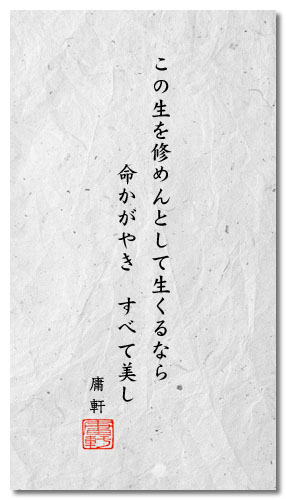 この生を修めんとして生くるなら
命かがやき　すべて美し
庸軒